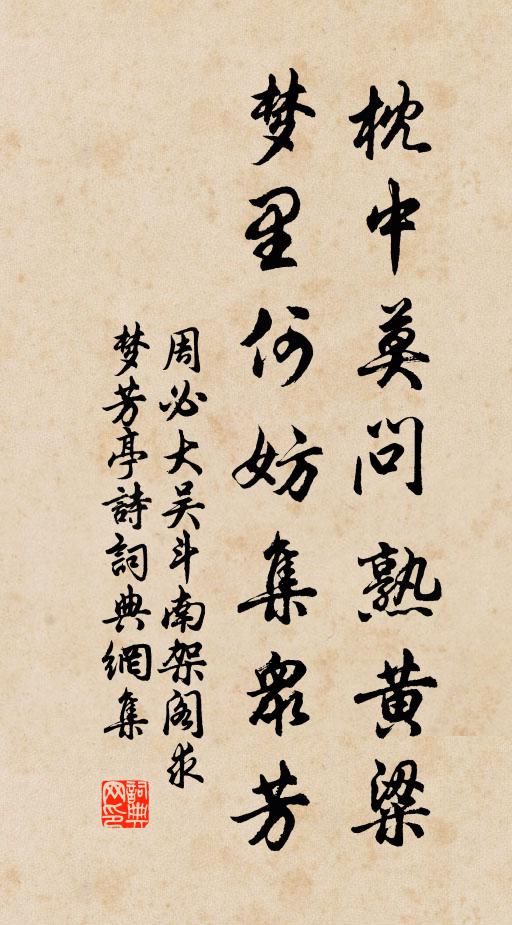 枕中莫问熟黄梁
梦里何妨集眾芳
周必大吴斗南架阁求
梦芳亭詩詞典網集
詞典网印